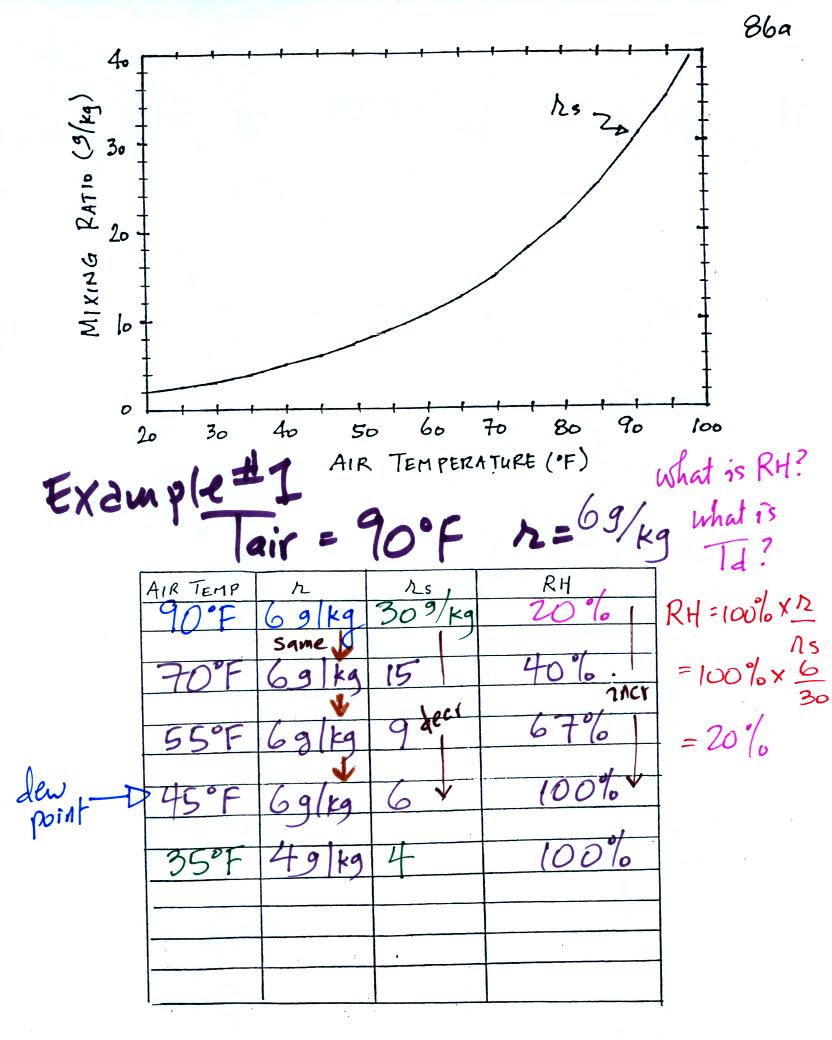 86a
40
30
20
10
0
MIXING RATIO (g/kg)
rs
20 30 40 50 60 70 80 90 100
AIR TEMPERATURE (°F)
Example #1
Tair = 90°F r = 6g/kg
what is RH?
what is
Td?
AIR TEMP r rs RH
90°F 6 g/kg 30 g/kg 20%
same
70°F 6g/kg 15 40%
incr
55°F 6g/kg 9 decr 67%
45°F 6g/kg 6 100%
35°F 4g/kg 4 100%
dew
point
RH = 100% × r/rs
= 100% × 6/30
= 20%